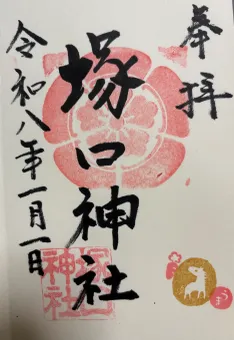 奉拝
塚口神社
令和八年一月一日
塚口神社
うま